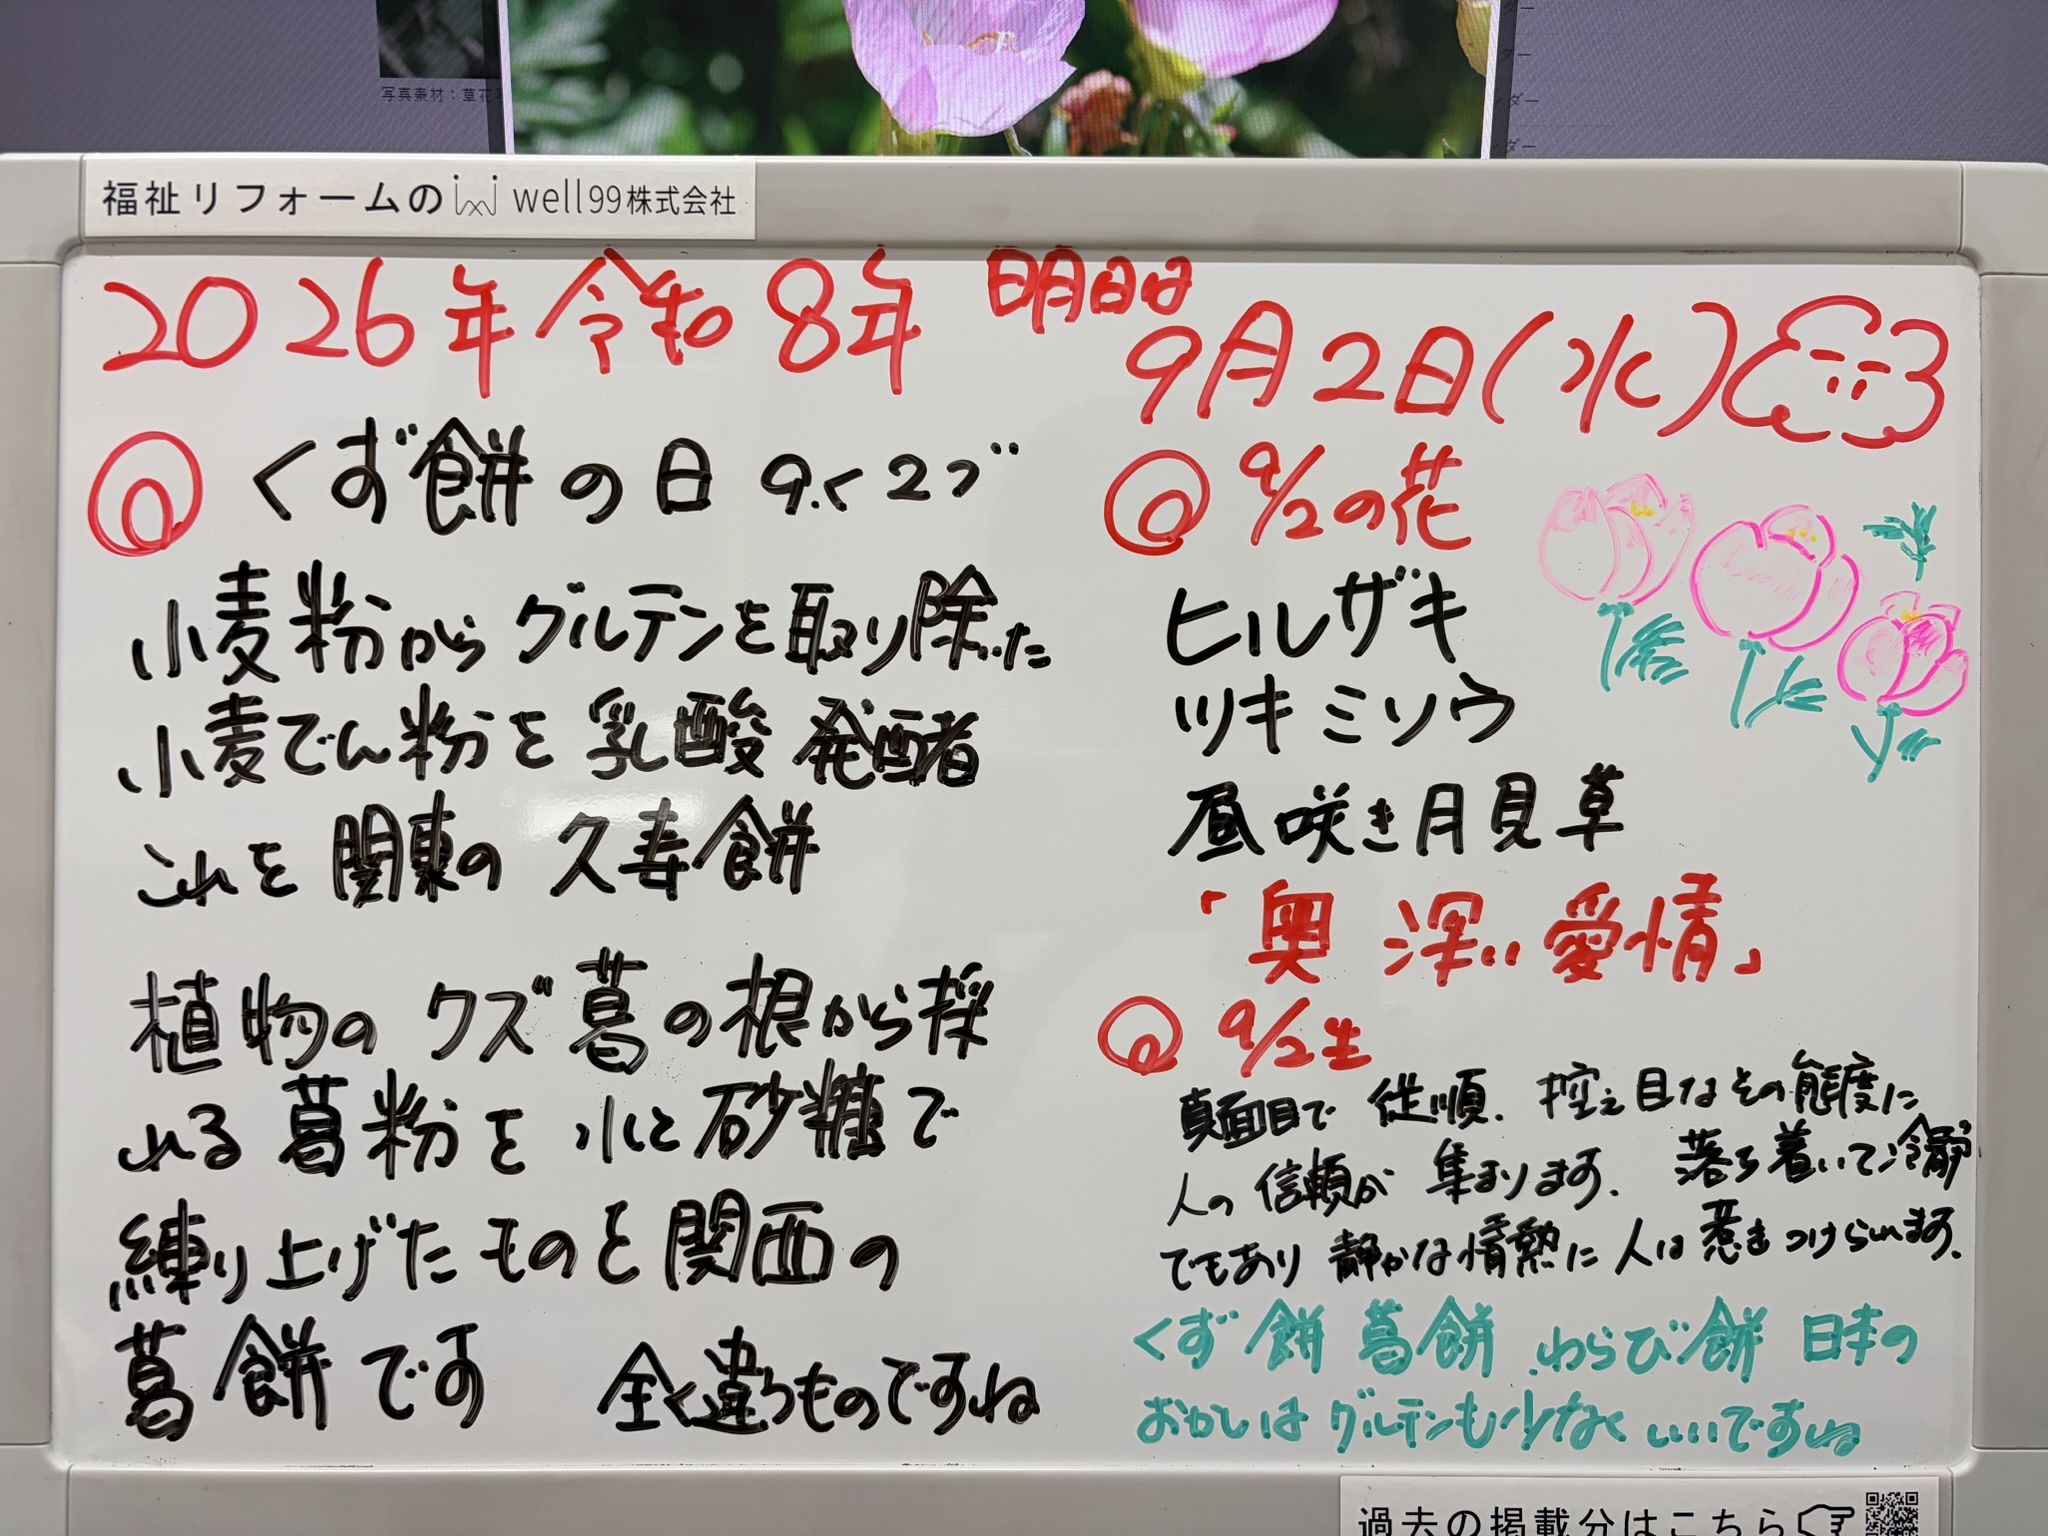 写真素材：草花
福祉リフォームの well99株式会社
2026年 令和8年 明日は
9月2日(水)
くず餅の日 9.く2ブ
小麦粉からグルテンを取り除いた
小麦でん粉を乳酸発酵
これを関東の久寿餅
植物のクズ葛の根から採
れる葛粉を水と砂糖で
練り上げたものを関西の
葛餅です 全く違うものですね
9/2の花
ヒルザキ
ツキミソウ
昼咲き月見草
「奥深い愛情」
9/2生
真面目で従順.控え目なその態度に
人の信頼が集まります.落ち着いて冷静
でもあり静かな情熱に人は惹きつけられます.
くず餅葛餅.わらび餅日本の
おかしはグルテンも少なくいいですね
過去の掲載分はこちら